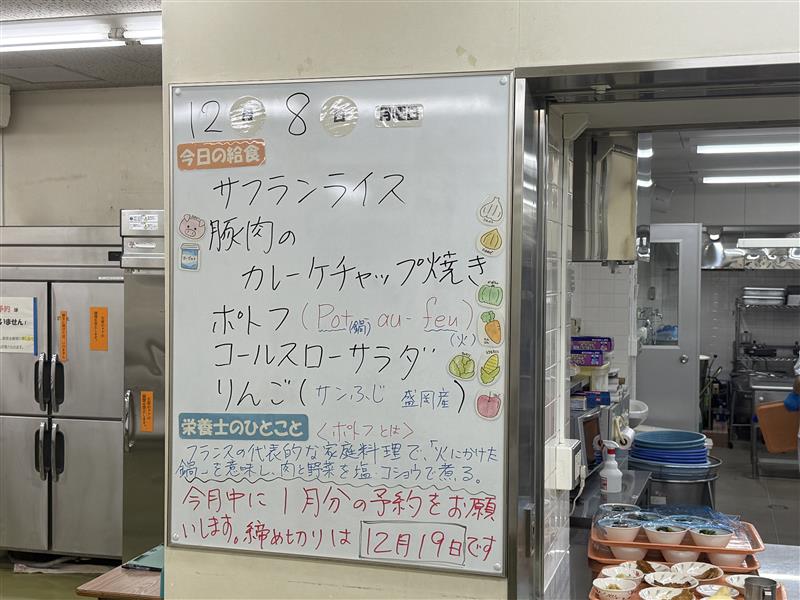 12月 8日 月曜日
今日の給食
サフランライス
豚肉の
カレーケチャップ焼き
ポトフ(Pot-au-feu)
(鍋) (火)
コールスローサラダ
りんご(サンふじ 盛岡産)
栄養士のひとこと <ポトフとは>
フランスの代表的な家庭料理で、「火にかけた
鍋」を意味し、肉と野菜を塩、コショウで煮る。
今月中に1月分の予約をお願
いします。締め切りは 12月19日です